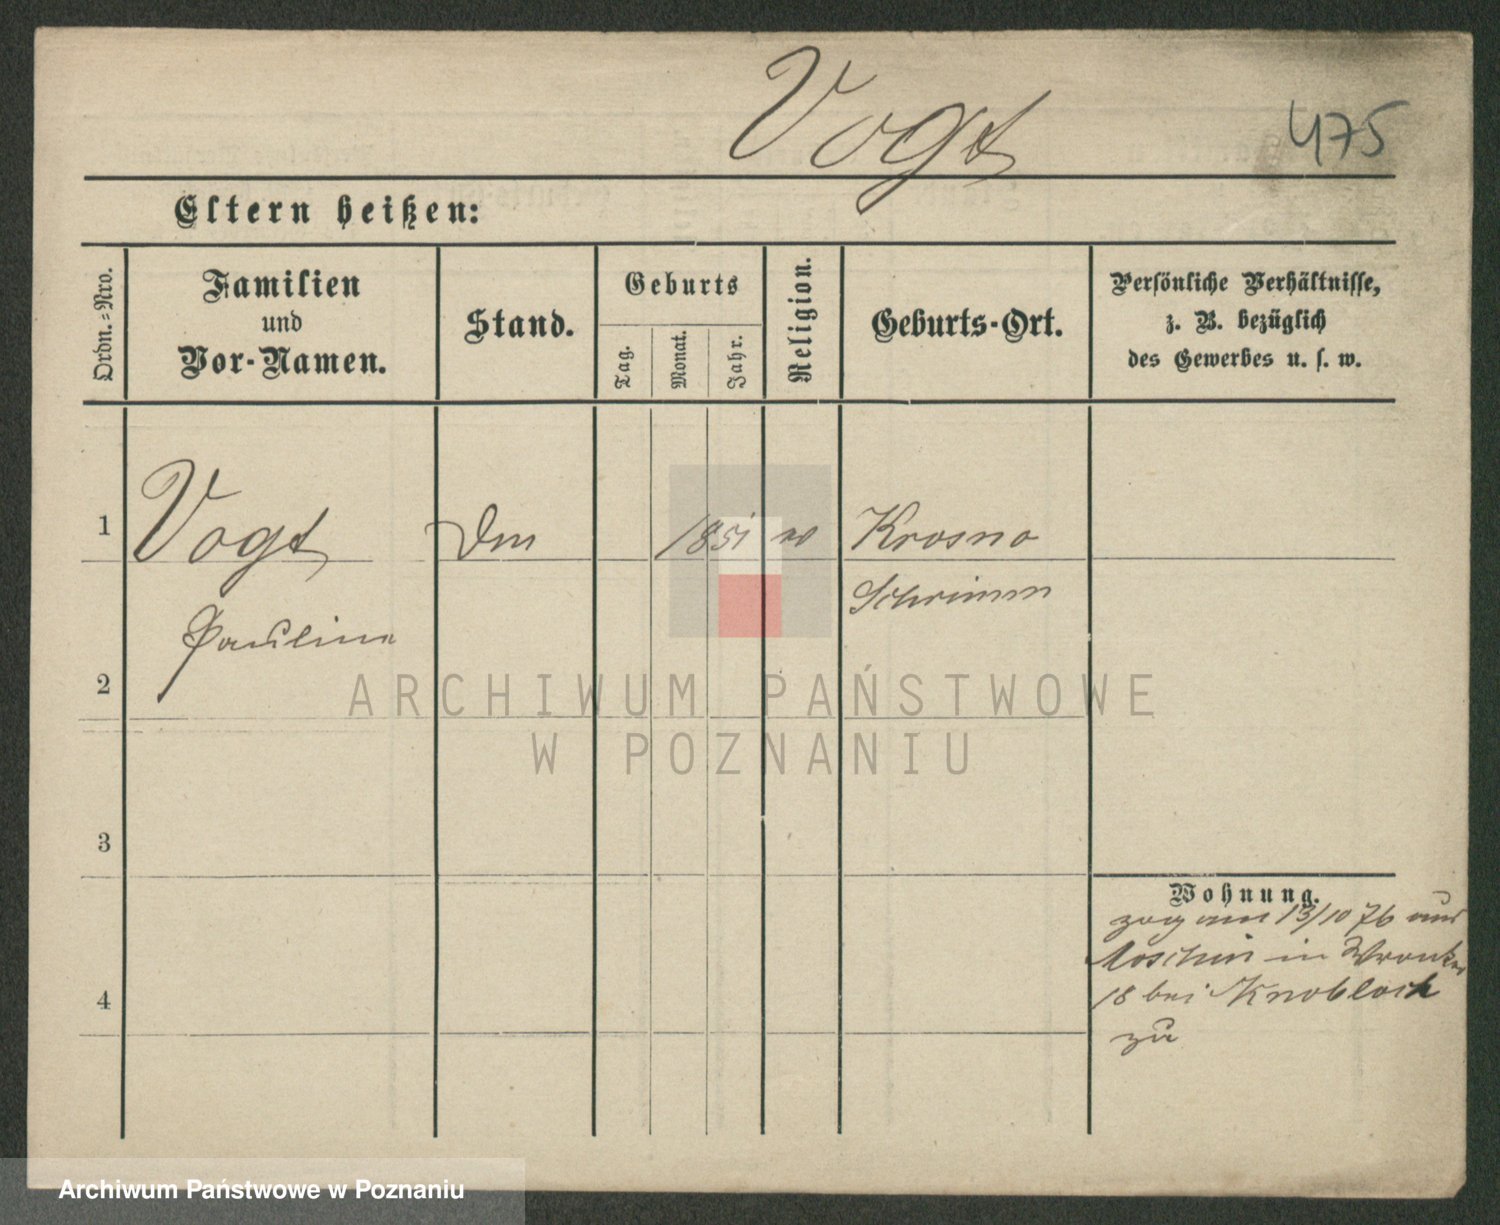 Vogt
475
Eltern heißen:
Ordn.=Nro.
Familien
und
Vor-Namen.
Stand.
Geburts
Tag.
Monat.
Jahr.
Religion.
Geburts-Ort.
Persönliche Verhältnisse,
z. B. bezüglich
des Gewerbes u. s. w.
1
Vogt
1851
Krosno
Schrimm
Pauline
2
ARCHIWUM PAŃSTWOWE
W POZNANIU
3
Wohnung.
zog am 13/10 76 aus
Moschin in Wronker
18 bei Knobloch
zu
4
Archiwum Państwowe w Poznaniu